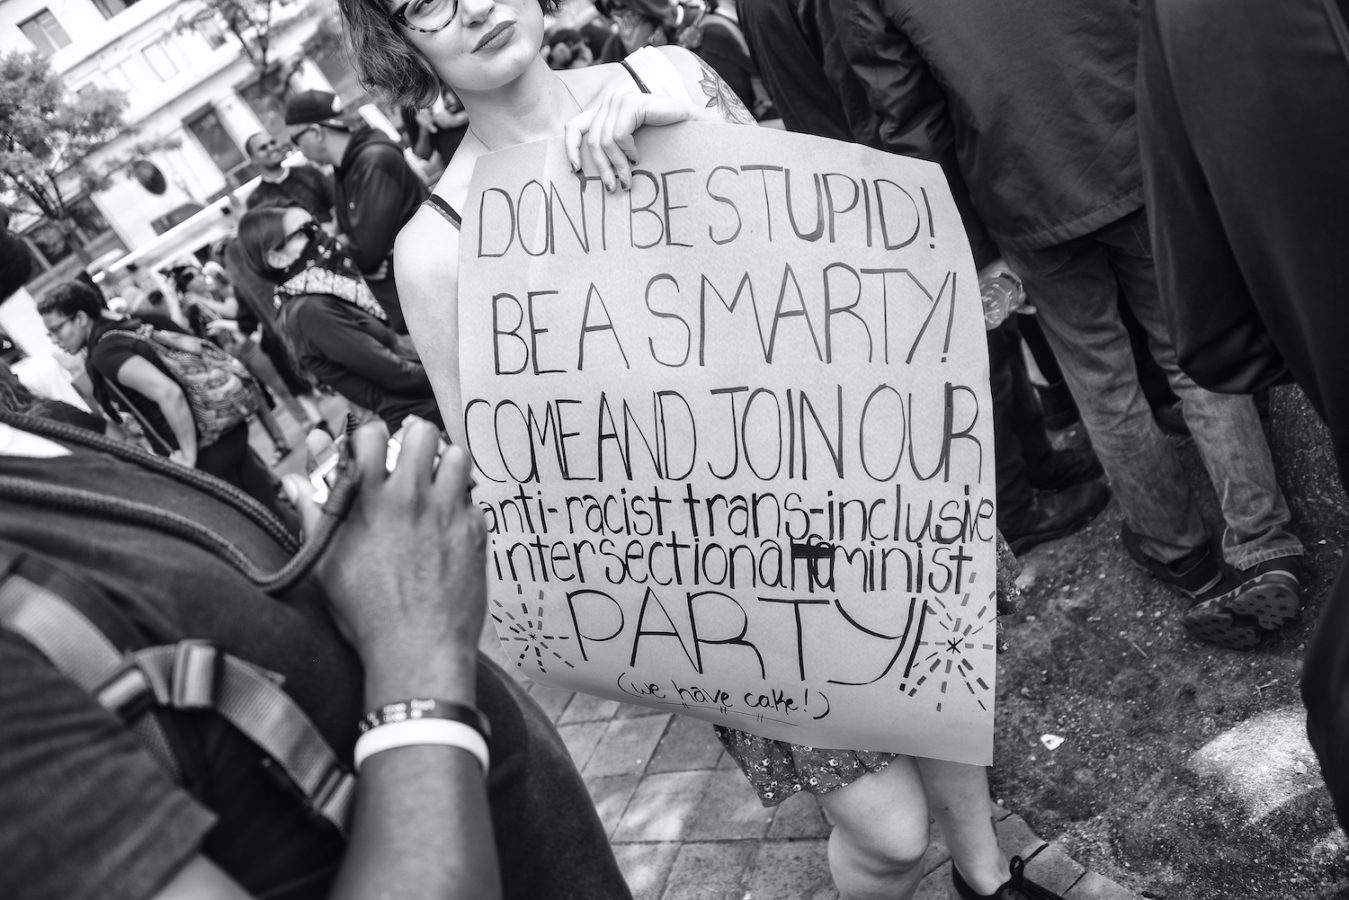 DON'T BE STUPID!
BE A SMARTY!
COME AND JOIN OUR
anti-racist trans-inclusive
intersectional feminist
PARTY!
(we have cake!)